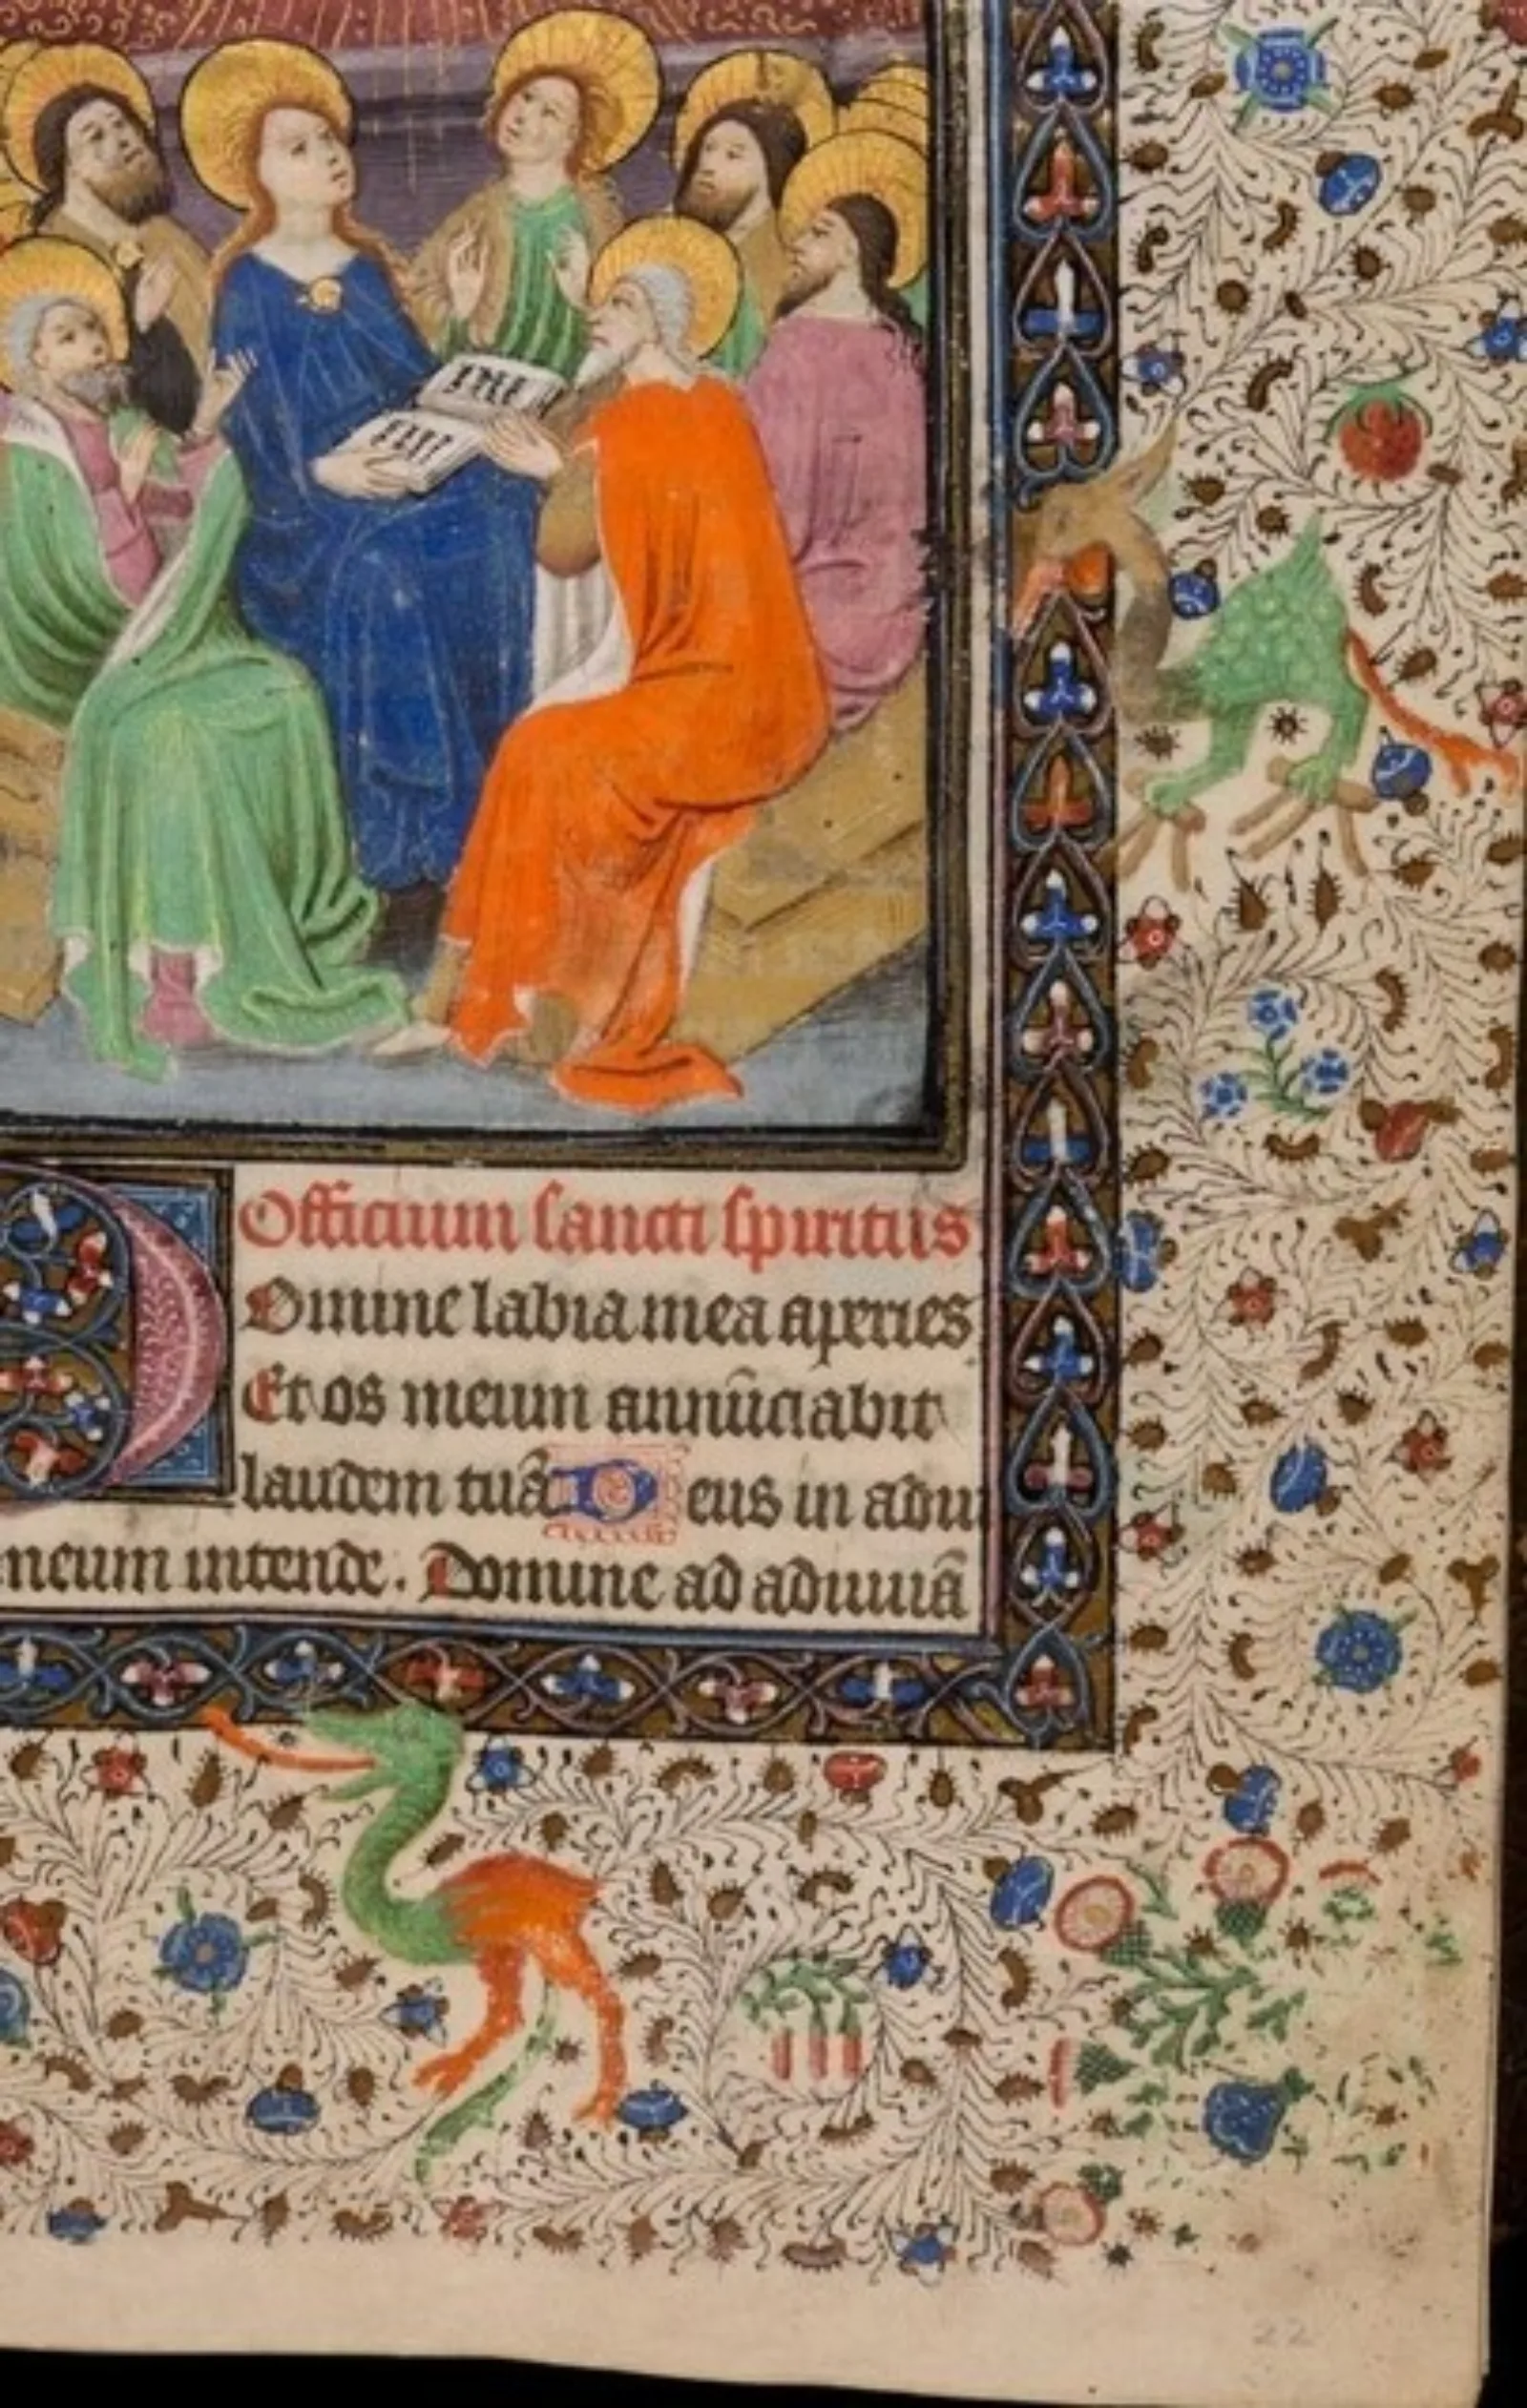 Officium sancti spiritus
Domine labia mea aperies
Et os meum annūciabit
laudem tuā Deus in adiu
meum intende. Domine ad adiuuā
22